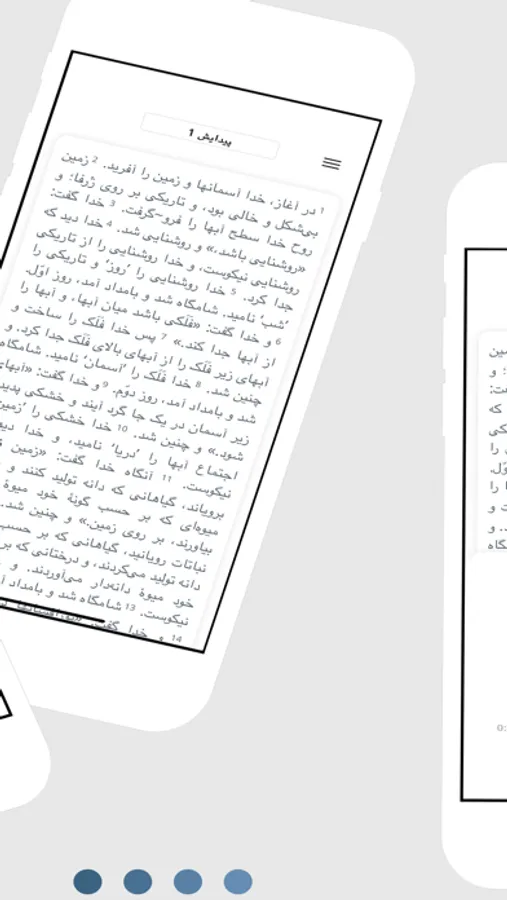 پیدایش 1
1 در آغاز، خدا آسمانها و زمین را آفرید. 2 زمین
بی‌شکل و خالی بود، و تاریکی بر روی ژرفا؛ و
روح خدا سطح آبها را فرو~گرفت. 3 خدا گفت:
«روشنایی باشد،» و روشنایی شد. 4 خدا دید که
روشنایی نیکوست، و خدا روشنایی را از تاریکی
جدا کرد. 5 خدا روشنایی را ’روز‘ و تاریکی را
’شب‘ نامید. شامگاه شد و بامداد آمد، روز اوّل.
6 و خدا گفت: «فَلَکی باشد میان آبها، و آبها را
از آبها جدا کند.» 7 پس خدا فَلَک را ساخت و
آبهای زیر فَلَک را از آبهای بالای فَلَک جدا کرد. و
چنین شد. 8 خدا فَلَک را ’آسمان‘ نامید. شامگاه
شد و بامداد آمد، روز دوّم. 9 و خدا گفت: «آبهای
زیر آسمان در یک جا گرد آیند و خشکی پدید
شود.» و چنین شد. 10 خدا خشکی را ’زمین
اجتماع آبها را ’دریا‘ نامید، و خدا دید
نیکوست. 11 آنگاه خدا گفت: «زمین
برویاند، گیاهانی که دانه تولید کنند و
میوه‌ای که بر حسب گونهٔ خود میوهٔ
بیاورند، بر روی زمین.» و چنین شد.
نباتات رویانید، گیاهانی که بر حسب
دانه تولید می‌کردند، و درختانی که بر
خود میوهٔ دانه‌دار می‌آوردند. و
نیکوست. 13 شامگاه شد و بامداد
14 و خدا گفت: